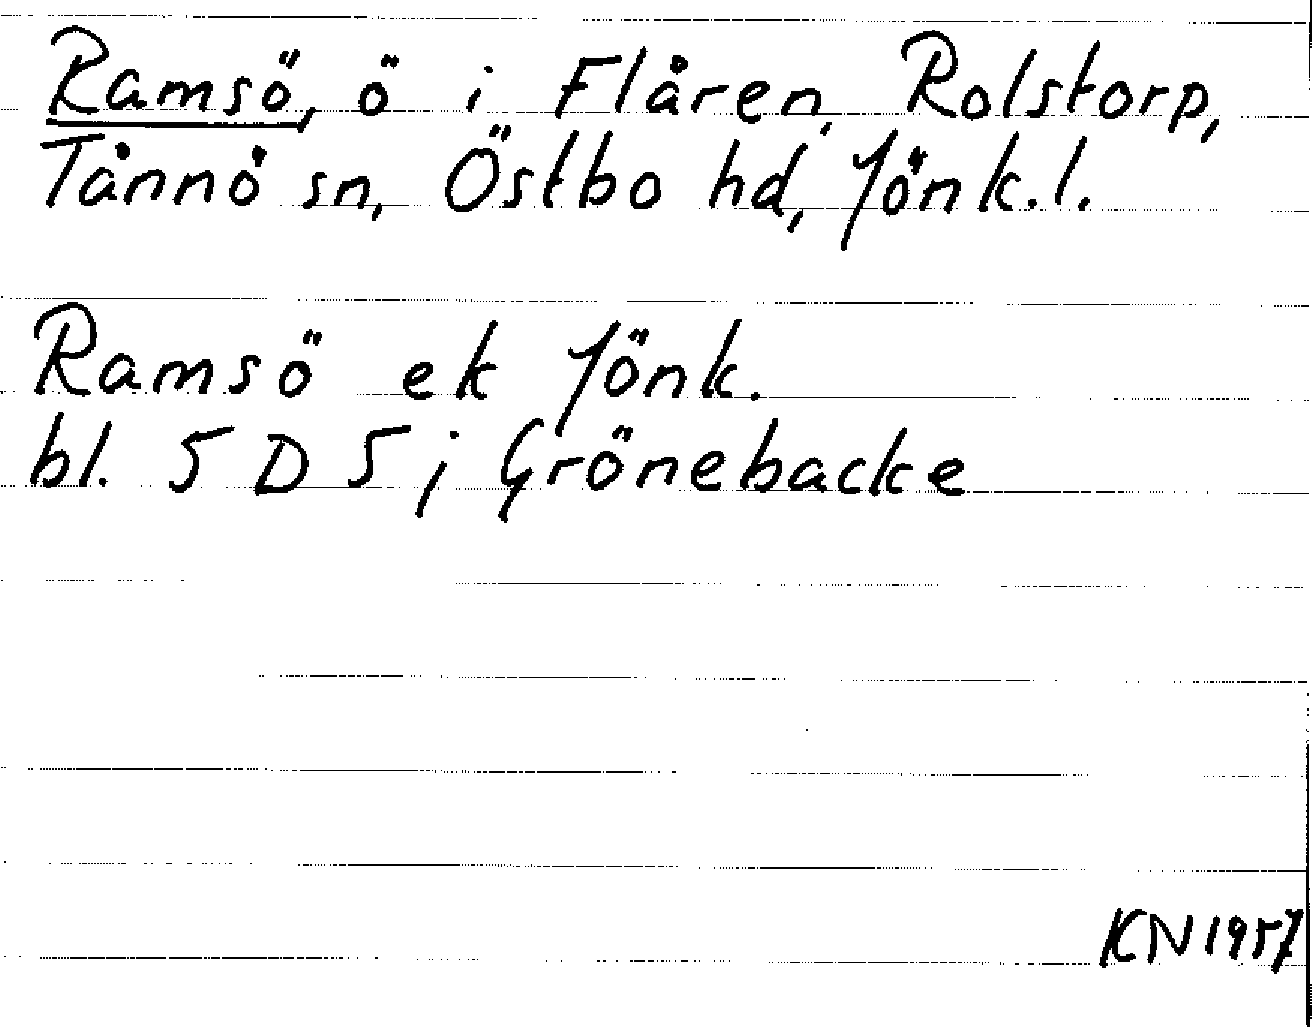 Ramsö, ö i Flåren, Rolstorp,
Tånnö sn, Östbo hd, Jönk.l.
Ramsö ek Jönk.
bl. 5 D 5 j Grönebacke
KN 1957